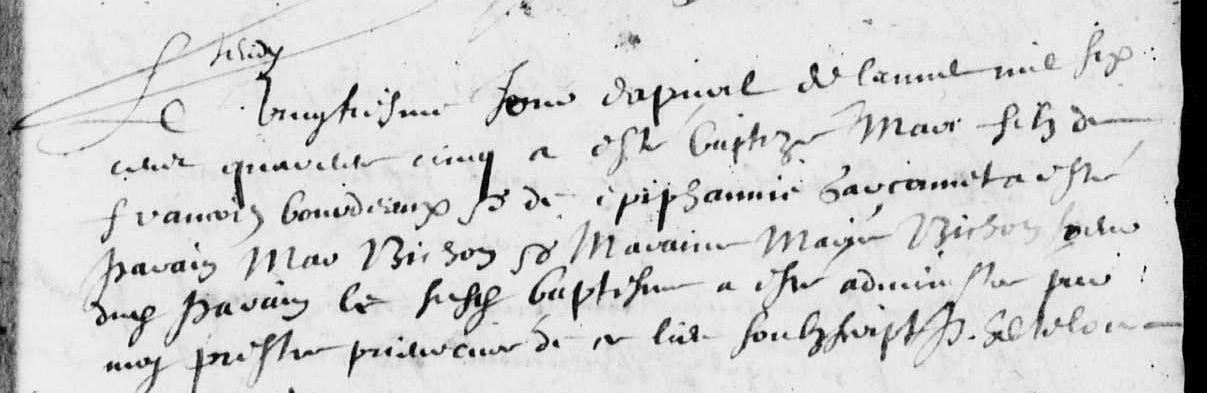 Le vingtiesme Jour dapvril de lannee mil six
cens quarente cinq a esté baptizé Marc filz de
francois bourdeaux & de epiphannie a esté
parain Marc Bichon & Maraine Marye Bichon
dud parain le susd baptesme a esté administré par
moy prestre prieur curé de ce lieu soubzscript P.